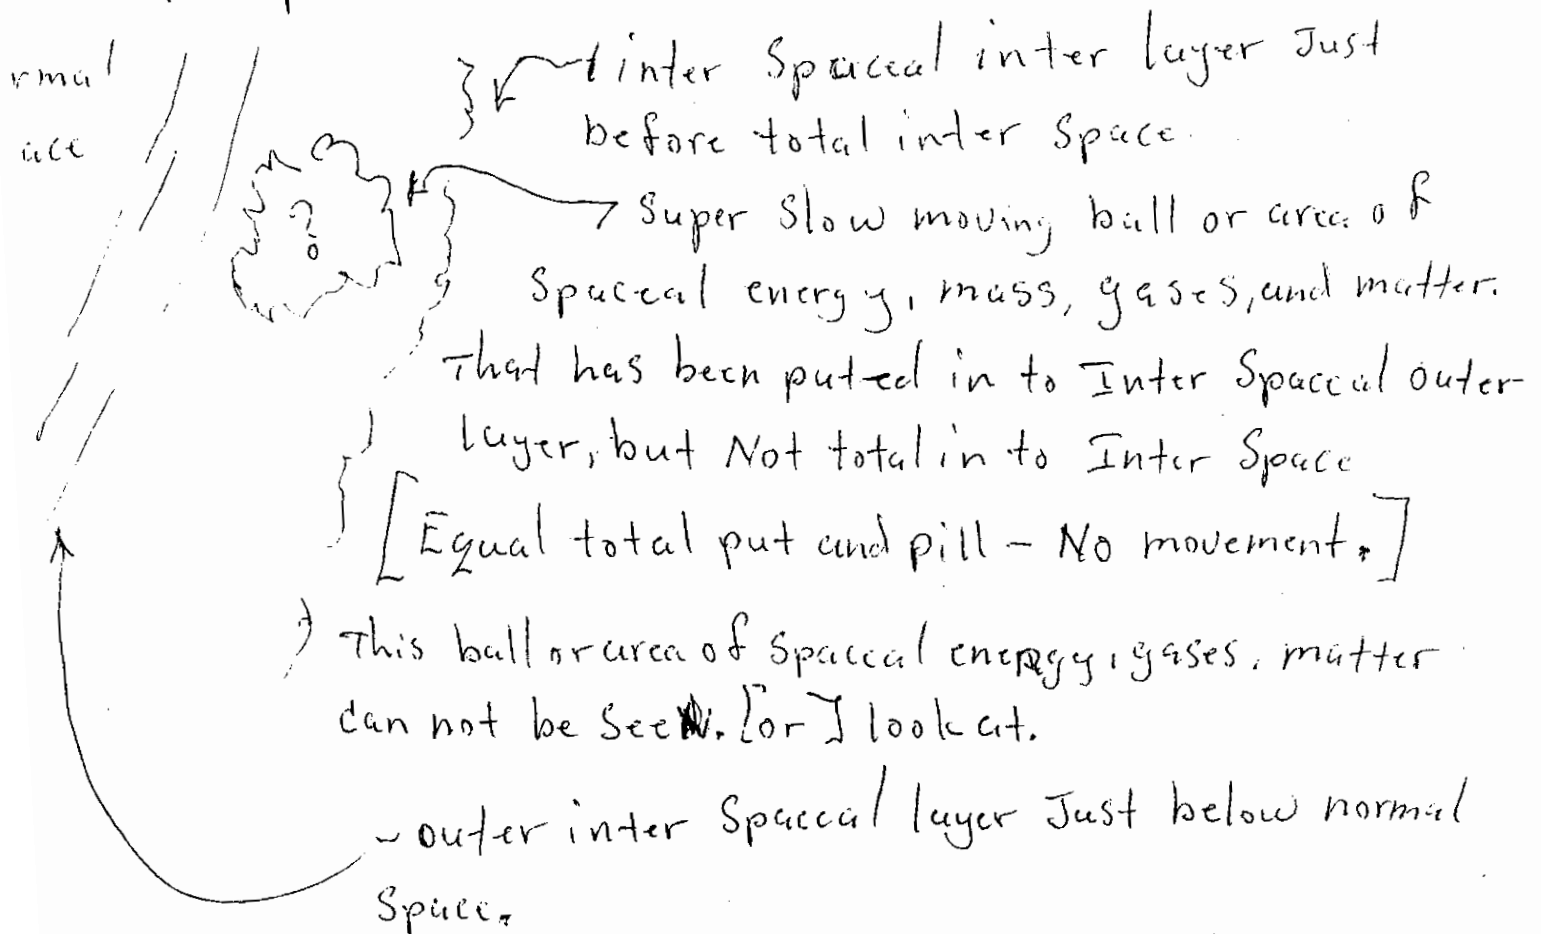 rmal
ace
inter Spaceal inter layer Just
before total inter Space.
?
Super Slow moving ball or area of
Spaceal energy, mass, gases, and matter.
That has been puted in to Inter Spaceal outer-
layer, but Not total in to Inter Space
[Equal total put and pill - No movement.]
This ball or area of Spaceal energy, gases, matter
can not be Seen. [or] look at.
- outer inter Spaceal layer Just below normal
Space.